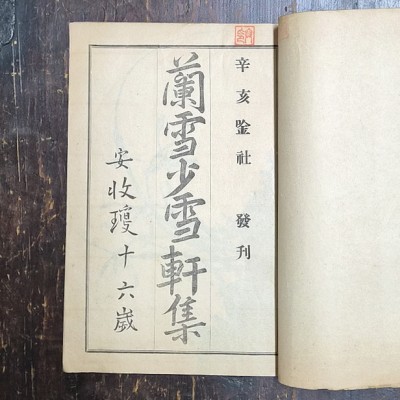 辛亥唫社 發刊
蘭雪少雪軒集
安收瓊十六歲